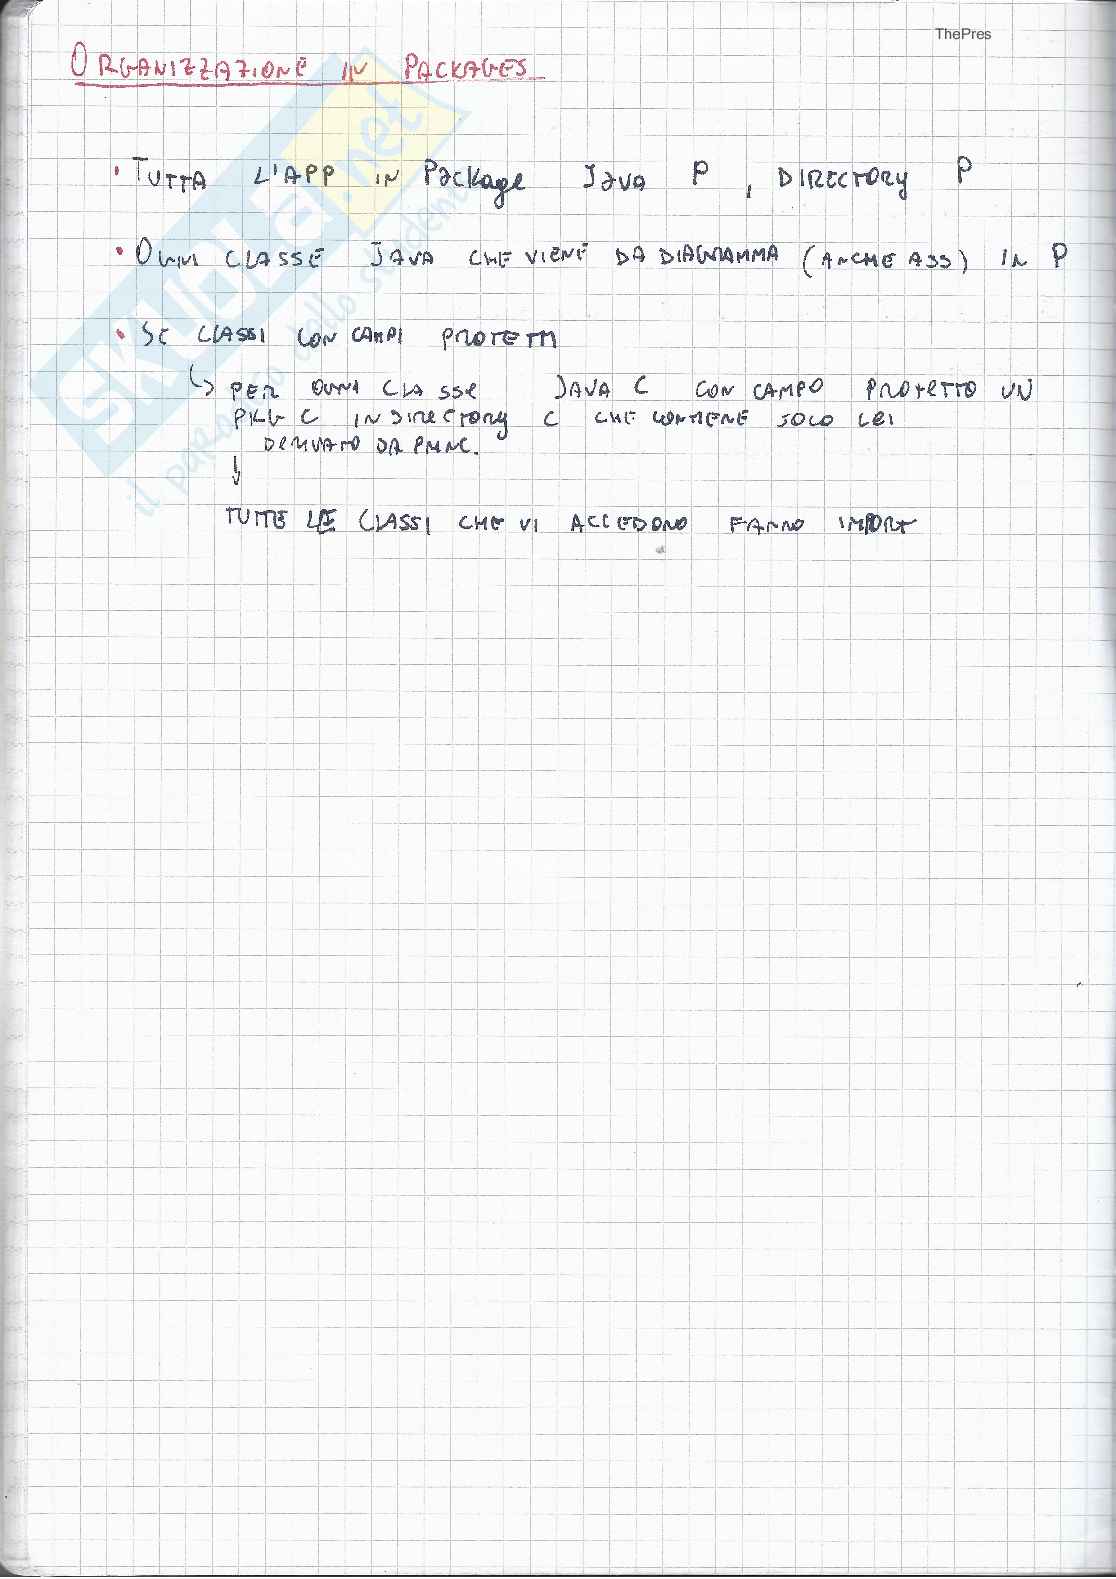 ThePres
ORGANIZZAZIONE IN PACKAGES
• TUTTA L'APP IN Package JAVA P, DIRECTORY P
• OGNI CLASSE JAVA CHE VIENE DA DIAGRAMMA (ANCHE ASS) IN P
• SE CLASSI CON CAMPI PROTETTI
↳ PER OGNI CLASSE JAVA C CON CAMPO PROTETTO UN
PKG C IN DIRECTORY C CHE CONTIENE SOLO LEI
DERIVATO DA
↓
TUTTE LE CLASSI CHE VI ACCEDONO FANNO IMPORT
SKUOLA.net
il paradiso dello studente